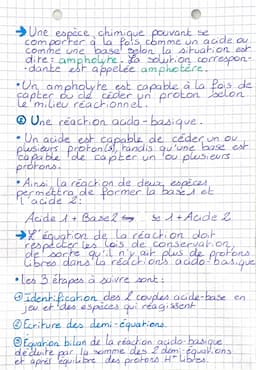 → Une espèce chimique pouvant se
comporter à la fois comme un acide ou
comme une base selon la situation est
dite : ampholyte. La solution correspon-
-dante est appelée amphotère.
• Un ampholyte est capable à la fois de
capter ou de céder un proton selon
le milieu réactionnel.
② Une réaction acido-basique.
• Un acide est capable de céder un ou
plusieurs proton(s), tandis qu'une base est
capable de capter un ou plusieurs
protons.
• Ainsi la réaction de deux espèces
permettra de former la base 1 et
l'acide 2 :
Acide 1 + Base 2 ⇋ se 1 + Acide 2
→ L'équation de la réaction doit
respecter les lois de conservation,
de sorte qu'il n'y ait plus de protons
libres dans la réactions acido-basique
• Les 3 étapes à suivre sont :
① identification des 2 couples acide-base en
jeu et des espèces qui réagissent
② Ecriture des demi-équations.
③ Equation bilan de la réaction acido-basique
déduite par la somme des 2 demi-équations
et après équilibre des protons H⁺ libres.